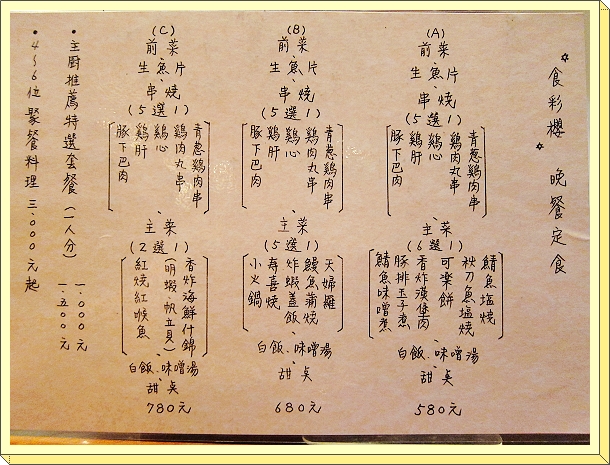 食彩櫻 晚餐定食
(A)
前菜、
生魚片、
串燒
(5選1)
青蔥雞肉串
雞肉丸串
雞心
雞肝
豚下巴肉
主菜
(6選1)
鯖魚塩燒
秋刀魚塩燒
可樂餅
香炸漢堡肉
豚排玉子煮
鯖魚味噌煮
白飯、味噌湯、
甜点
580元
(B)
前菜、
生魚片、
串燒
(5選1)
青蔥雞肉串
雞肉丸串
雞心
雞肝
豚下巴肉
主菜
(5選1)
天婦羅
鰻魚蒲燒
炸蝦蓋飯
寿喜燒
小火鍋
白飯、味噌湯、
甜点
680元
(C)
前菜、
生魚片、
串燒
(5選1)
青蔥雞肉串
雞肉丸串
雞心
雞肝
豚下巴肉
主菜
(2選1)
香炸海鮮什錦
(明蝦、帆立貝)
紅燒紅喉魚
白飯、味噌湯、
甜点
780元
•主厨推薦特選套餐(一人分) 一.000元
一.五00元
•4~6位聚餐料理 三.000元起